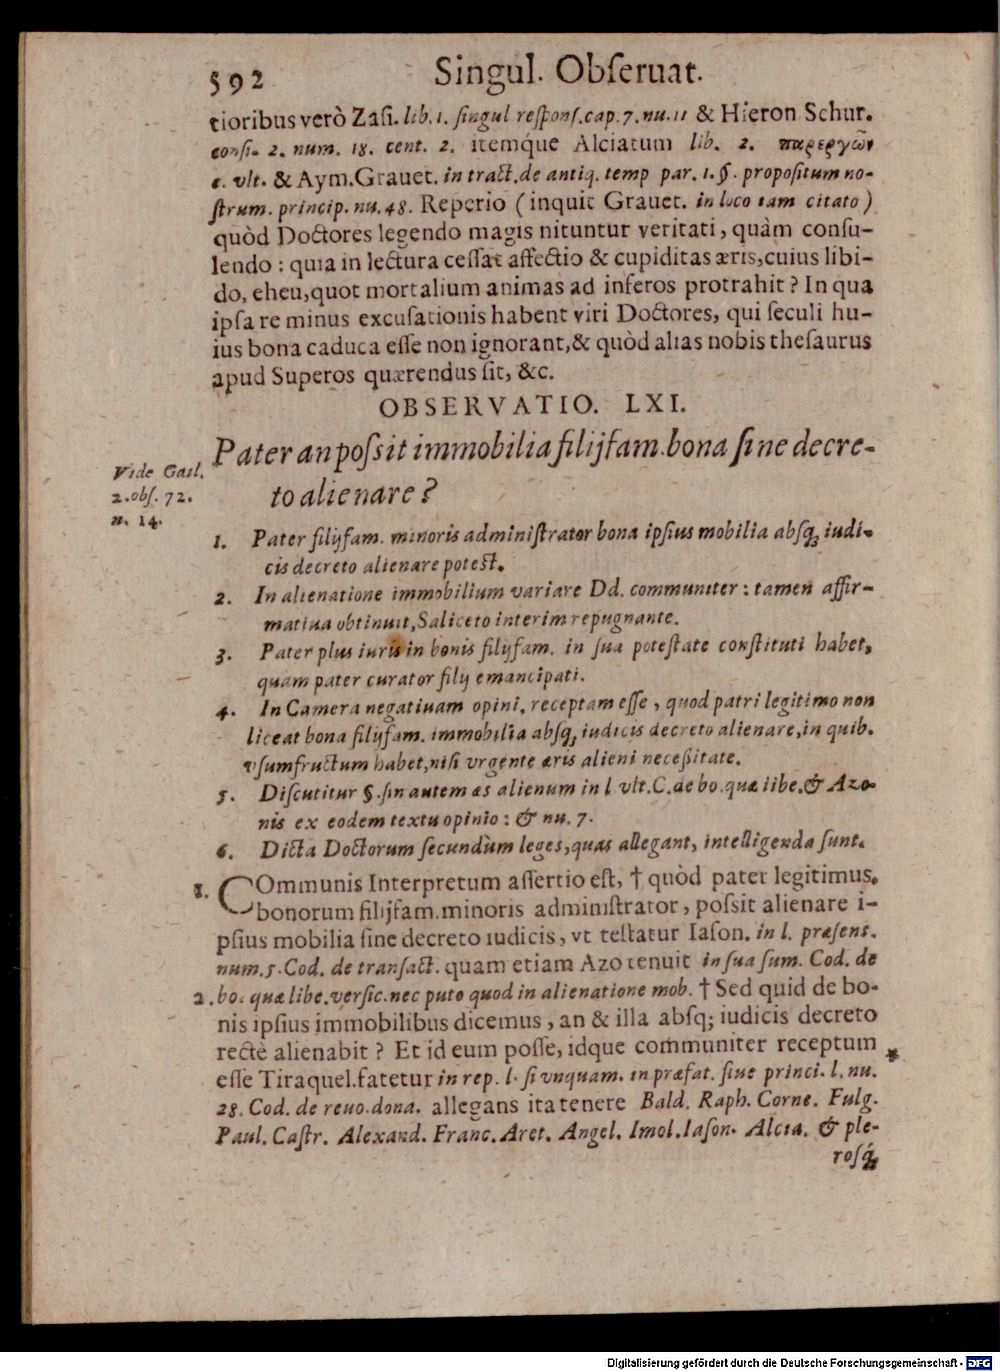 592 Singul. Obſeruat.
tioribus verò Zaſi. lib. 1. ſingul reſponſ. cap. 7. nu. 11 & Hieron Schur.
conſi. 2. num. 18. cent. 2. itemq́ue Alciatum lib. 2. παρεργῶν
c. vlt. & Aym. Grauet. in tract. de antiq. temp par. 1. §. propoſitum no-
ſtrum. princip. nu. 48. Reperio (inquit Grauet. in loco iam citato)
quòd Doctores legendo magis nituntur veritati, quàm conſu-
lendo: quia in lectura ceſſat affectio & cupiditas æris, cuius libi-
do, eheu, quot mortalium animas ad inferos protrahit? In qua
ipſa re minus excuſationis habent viri Doctores, qui ſeculi hu-
ius bona caduca eſſe non ignorant, & quòd alias nobis theſaurus
apud Superos quærendus ſit, &c.
OBSERVATIO. LXI.
Pater an poſsit immobilia filijfam. bona ſine decre-
to alienare?
Vide Gail.
2. obſ. 72.
n. 14.
1. Pater filijfam. minoris adminiſtrator bona ipſius mobilia abſq; iudi-
cis decreto alienare poteſt.
2. In alienatione immobilium variare Dd. communiter: tamen affir-
matiua obtinuit, Saliceto interim repugnante.
3. Pater plus iuris in bonis filijfam. in ſua poteſtate conſtituti habet,
quam pater curator filij emancipati.
4. In Camera negatiuam opini. receptam eſſe, quod patri legitimo non
liceat bona filijfam. immobilia abſq; iudicis decreto alienare, in quib.
vſumfructum habet, niſi vrgente æris alieni neceßitate.
5. Diſcutitur §. ſin autem æs alienum in l vlt. C. de bo. quæ libe. & Azo-
nis ex eodem textu opinio: & nu. 7.
6. Dicta Doctorum ſecundùm leges, quas allegant, intelligenda ſunt.
1. COmmunis Interpretum aſſertio eſt, † quòd pater legitimus,
bonorum filijfam. minoris adminiſtrator, poſsit alienare i-
pſius mobilia ſine decreto iudicis, vt teſtatur Iaſon. in l. præſens.
num. 5. Cod. de tranſact. quam etiam Azo tenuit in ſua ſum. Cod. de
2. bo. quæ libe. verſic. nec puto quod in alienatione mob. † Sed quid de bo-
nis ipſius immobilibus dicemus, an & illa abſq; iudicis decreto
rectè alienabit? Et id eum poſſe, idque com̃uniter receptum *
eſſe Tiraquel. fatetur in rep. l. ſi vnquam. in præfat. ſiue princi. l. nu.
28. Cod. de reuo. dona. allegans ita tenere Bald. Raph. Corne. Fulg.
Paul. Caſtr. Alexand. Franc. Aret. Angel. Imol. Iaſon. Alcia. & ple-
roſq́;
Digitalisierung gefördert durch die Deutsche Forschungsgemeinschaft - DFG